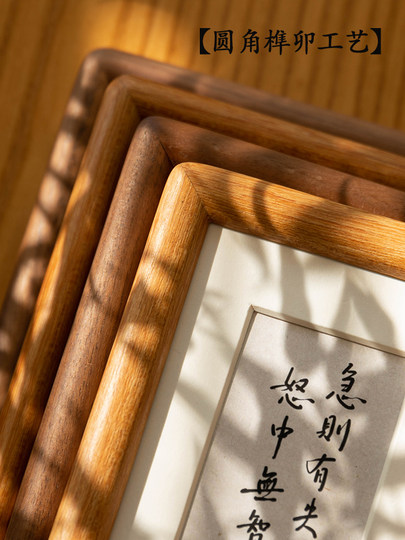 【圆角榫卯工艺】
急則有失
怒中無智